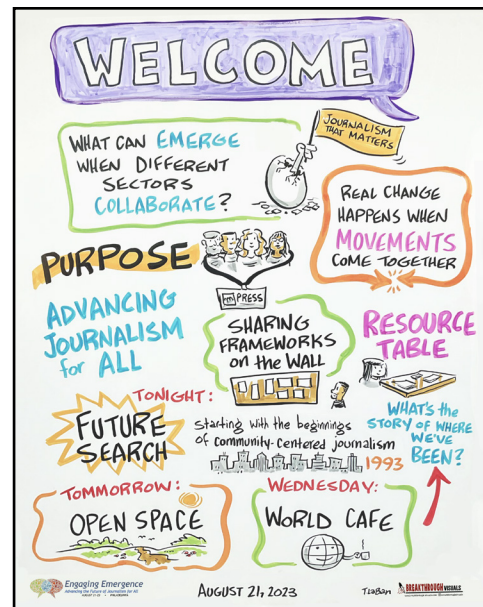 WELCOME
JOURNALISM
THAT MATTERS
WHAT CAN EMERGE
WHEN DIFFERENT
SECTORS
COLLABORATE?
REAL CHANGE
HAPPENS WHEN
MOVEMENTS
COME TOGETHER
PURPOSE
PRESS
ADVANCING
JOURNALISM
for ALL
SHARING
FRAMEWORKS
on the WALL
RESOURCE
TABLE
TONIGHT:
FUTURE
SEARCH
Starting with the beginnings
of community-centered journalism
1993
WHAT'S the
STORY OF WHERE
WE'VE
BEEN?
TOMMORROW:
OPEN SPACE
WEDNESDAY:
WORLD CAFE
Engaging Emergence
Advancing the Future of Journalism for All
AUGUST 21, 2023
TLaBan
BREAKTHROUGH VISUALS